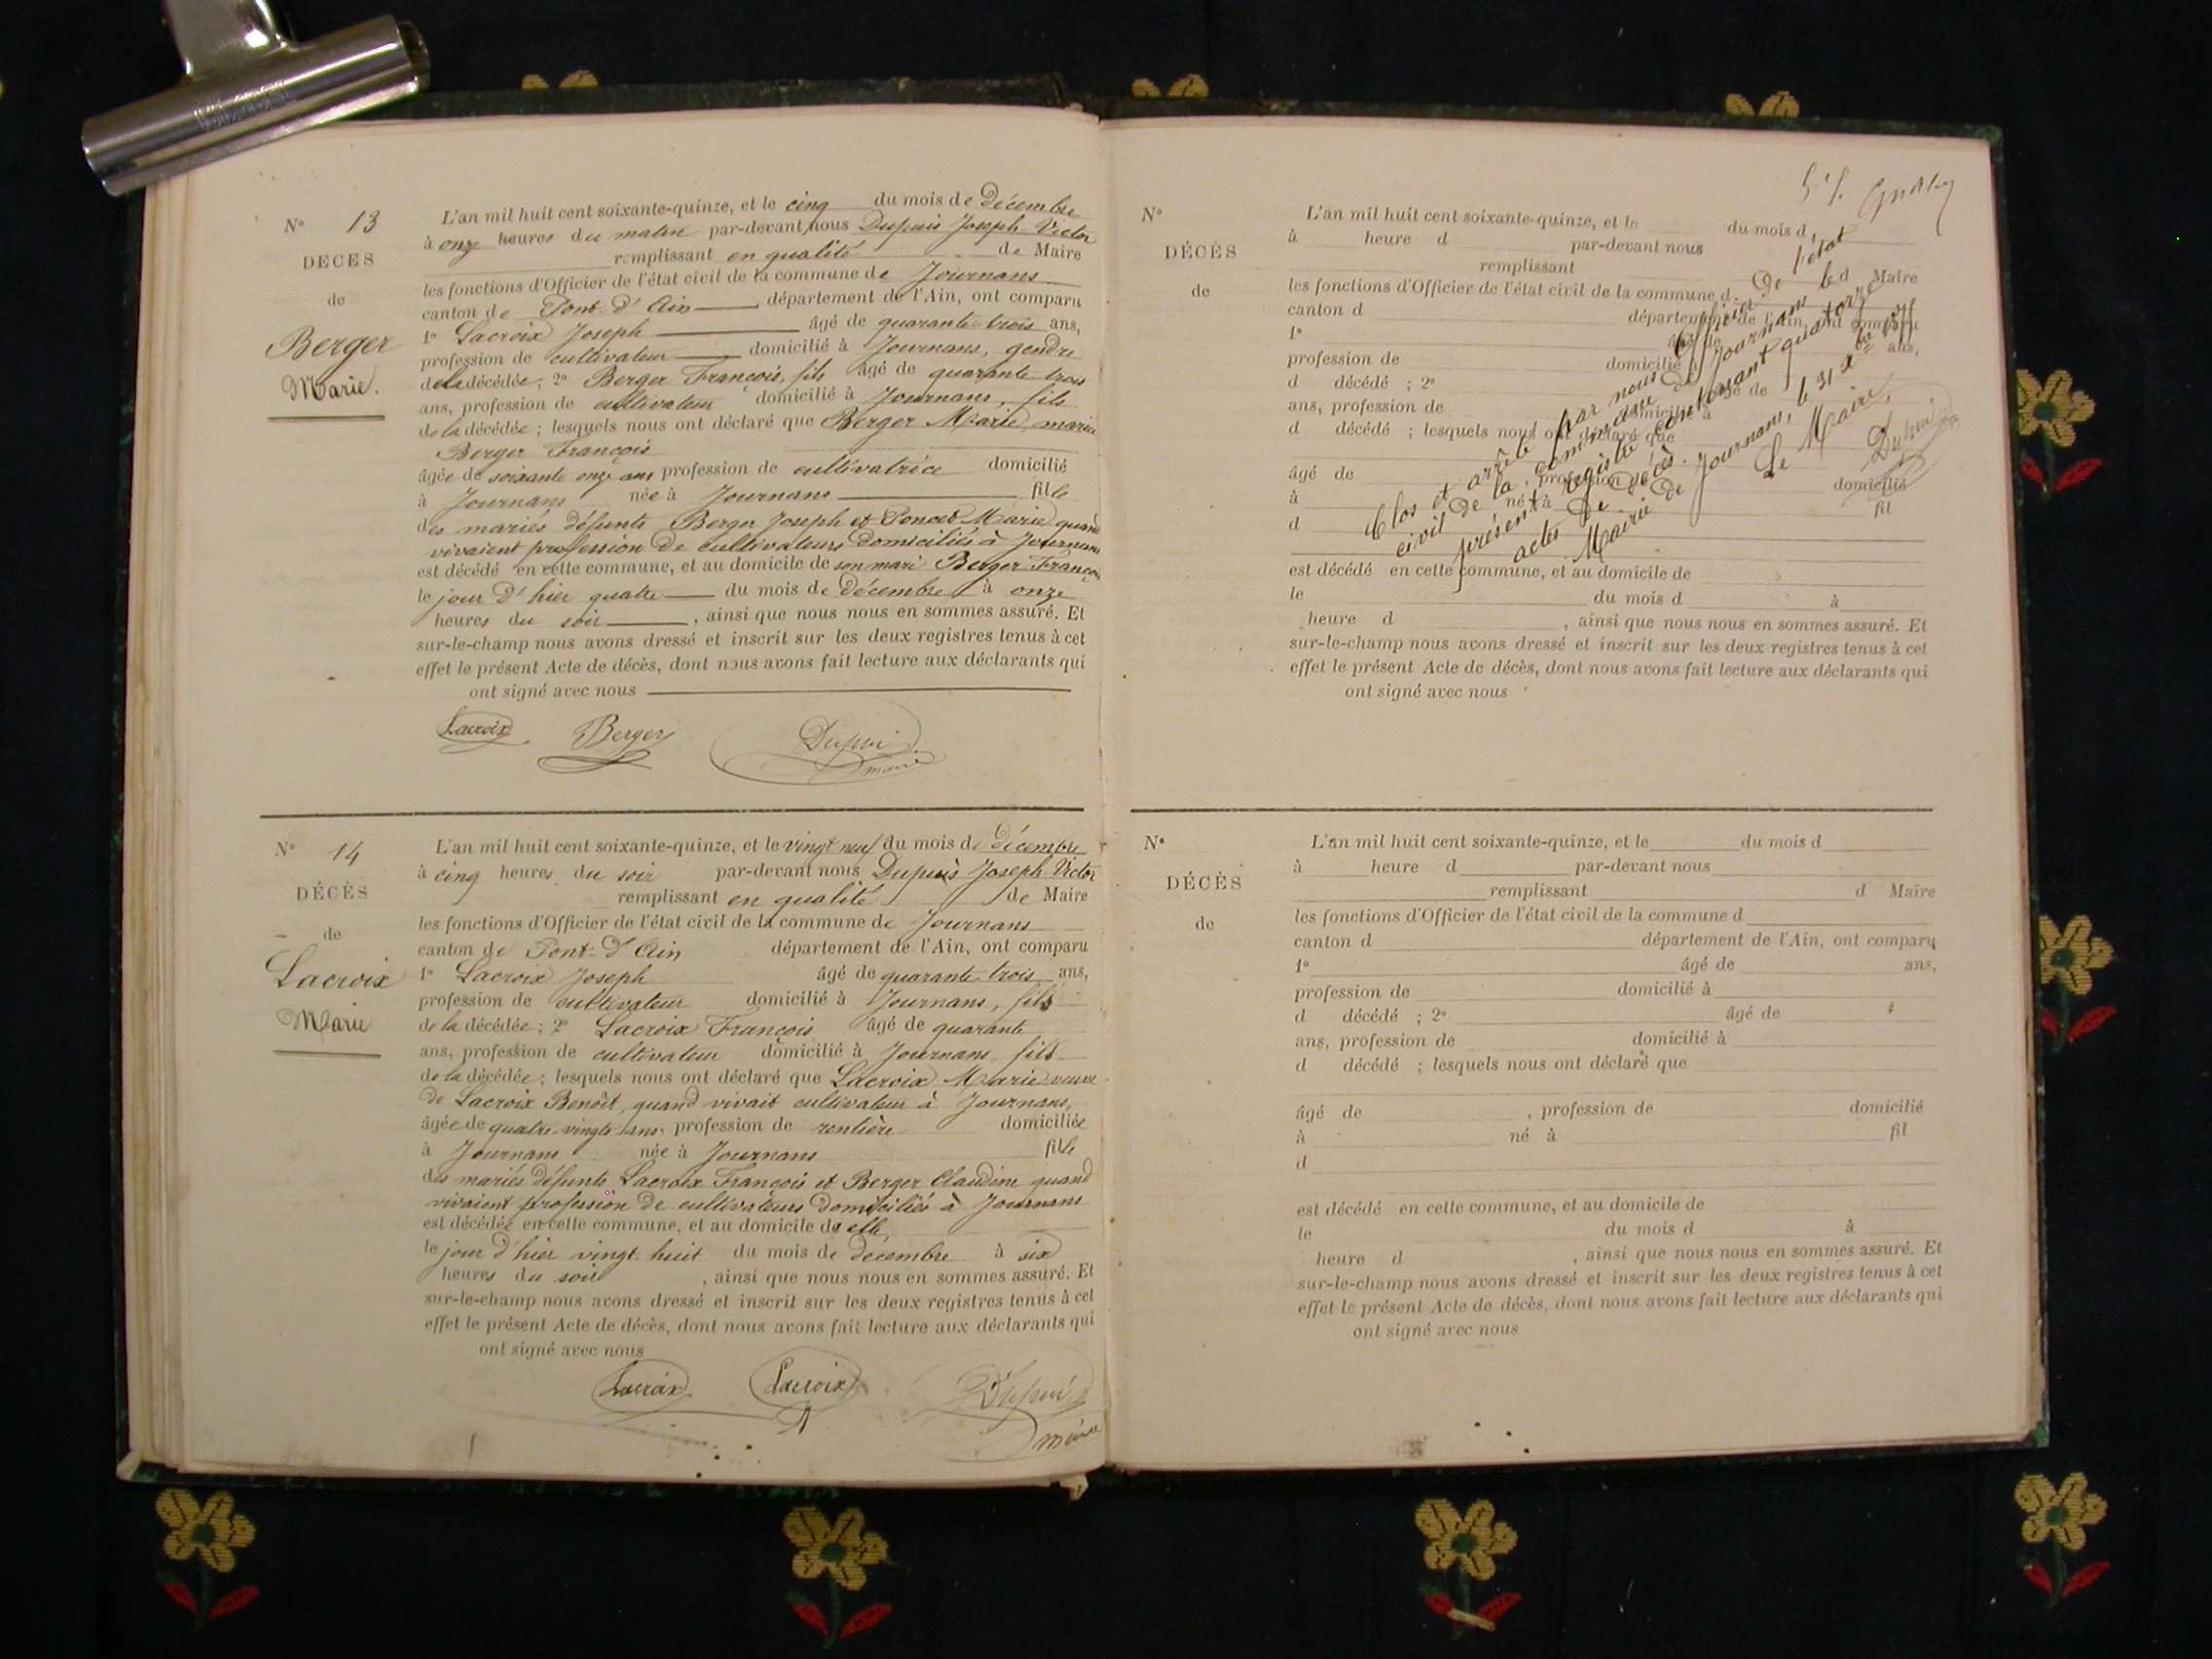 N° 13
DÉCÈS
de
Berger
Marie.
L'an mil huit cent soixante-quinze, et le cinq du mois de Décembre
à onze heures du matin par-devant nous Dupuis Joseph Victor
remplissant en qualité de Maire
les fonctions d'Officier de l'état civil de la commune de Journans
canton de Pont-d'Ain département de l'Ain, ont comparu
1° Lacroix Joseph âgé de quarante-trois ans,
profession de cultivateur domicilié à Journans, gendre
de la décédée; 2° Berger François, fils âgé de quarante-trois
ans, profession de cultivateur domicilié à Journans, fils
de la décédée; lesquels nous ont déclaré que Berger Marie, mariée
Berger François
âgée de soixante onze ans profession de cultivatrice domicilié
à Journans née à Journans fille
des mariés défunts Berger Joseph et Poncet Marie quand
vivaient profession de cultivateurs domiciliés à Journans
est décédé en cette commune, et au domicile de son mari Berger François
le jour d'hier quatre du mois de Décembre à onze
heures du soir, ainsi que nous nous en sommes assuré. Et
sur-le-champ nous avons dressé et inscrit sur les deux registres tenus à cet
effet le présent Acte de décès, dont nous avons fait lecture aux déclarants qui
ont signé avec nous
Lacroix Berger Dupui
maire
N° 14
DÉCÈS
de
Lacroix
Marie
L'an mil huit cent soixante-quinze, et le vingt neuf du mois de Décembre
à cinq heures du soir par-devant nous Dupuis Joseph Victor
remplissant en qualité de Maire
les fonctions d'Officier de l'état civil de la commune de Journans
canton de Pont-d'Ain département de l'Ain, ont comparu
1° Lacroix Joseph âgé de quarante-trois ans,
profession de cultivateur domicilié à Journans, fils
de la décédée; 2° Lacroix François âgé de quarante
ans, profession de cultivateur domicilié à Journans fils
de la décédée; lesquels nous ont déclaré que Lacroix Marie veuve
de Lacroix Benoît, quand vivait cultivateur à Journans,
âgée de quatre-vingts ans profession de rentière domiciliée
à Journans née à Journans fille
des mariés défunts Lacroix François et Berger Claudine quand
vivaient profession de cultivateurs domiciliés à Journans
est décédée en cette commune, et au domicile de elle
le jour d'hier vingt-huit du mois de décembre à six
heures du soir, ainsi que nous nous en sommes assuré. Et
sur-le-champ nous avons dressé et inscrit sur les deux registres tenus à cet
effet le présent Acte de décès, dont nous avons fait lecture aux déclarants qui
ont signé avec nous
Lacroix Lacroix Dupui
maire
N°
DÉCÈS
de
L'an mil huit cent soixante-quinze, et le du mois d
à heure d par-devant nous
remplissant d Maire
les fonctions d'Officier de l'état civil de la commune d
canton d département de l'Ain, ont comparu
1° âgé de ans,
profession de domicilié à
d décédé ; 2° âgé de
ans, profession de domicilié à
d décédé ; lesquels nous ont déclaré que
âgé de , profession de domicilié
à né à fil
d
est décédé en cette commune, et au domicile de
le du mois d à
heure d , ainsi que nous nous en sommes assuré. Et
sur-le-champ nous avons dressé et inscrit sur les deux registres tenus à cet
effet le présent Acte de décès, dont nous avons fait lecture aux déclarants qui
ont signé avec nous
Clos et arrêté par nous Officier de l'état
civil de la commune de Journans le
présent registre contenant quatorze
actes de décès.
Mairie de Journans, le 31 Xbre 1875
Le Maire,
Dupui
N°
DÉCÈS
de
L'an mil huit cent soixante-quinze, et le du mois d
à heure d par-devant nous
remplissant d Maire
les fonctions d'Officier de l'état civil de la commune d
canton d département de l'Ain, ont comparu
1° âgé de ans,
profession de domicilié à
d décédé ; 2° âgé de
ans, profession de domicilié à
d décédé ; lesquels nous ont déclaré que
âgé de , profession de domicilié
à né à fil
d
est décédé en cette commune, et au domicile de
le du mois d à
heure d , ainsi que nous nous en sommes assuré. Et
sur-le-champ nous avons dressé et inscrit sur les deux registres tenus à cet
effet le présent Acte de décès, dont nous avons fait lecture aux déclarants qui
ont signé avec nous